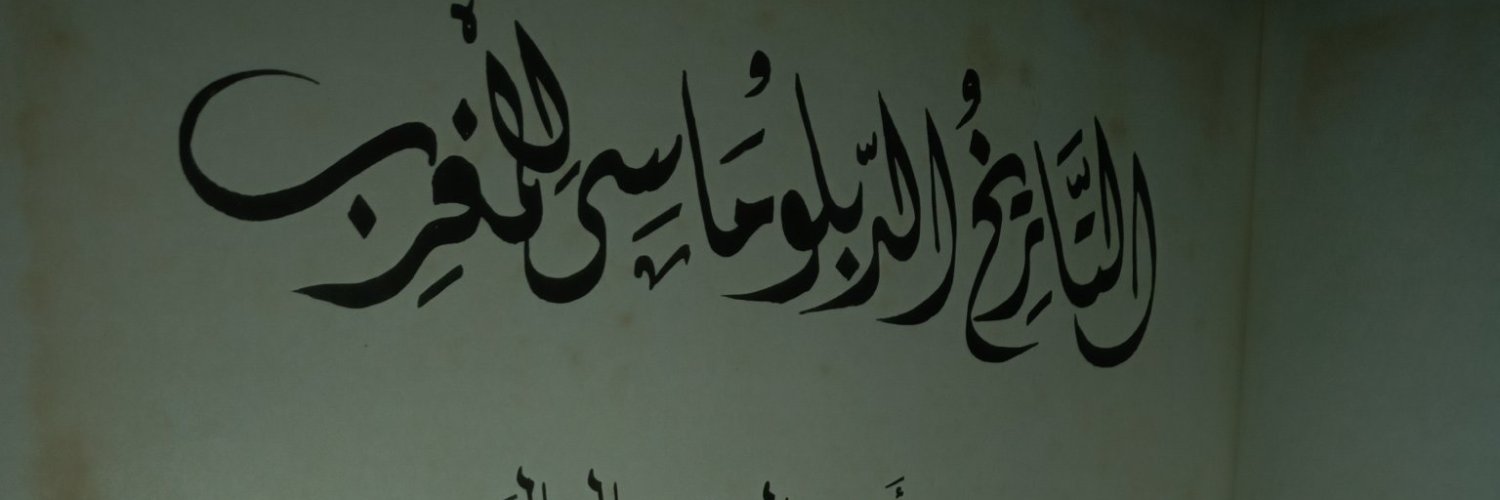 التَّارِيخُ الدِّبلُومَاسِي لِلْمَغْرِبِ